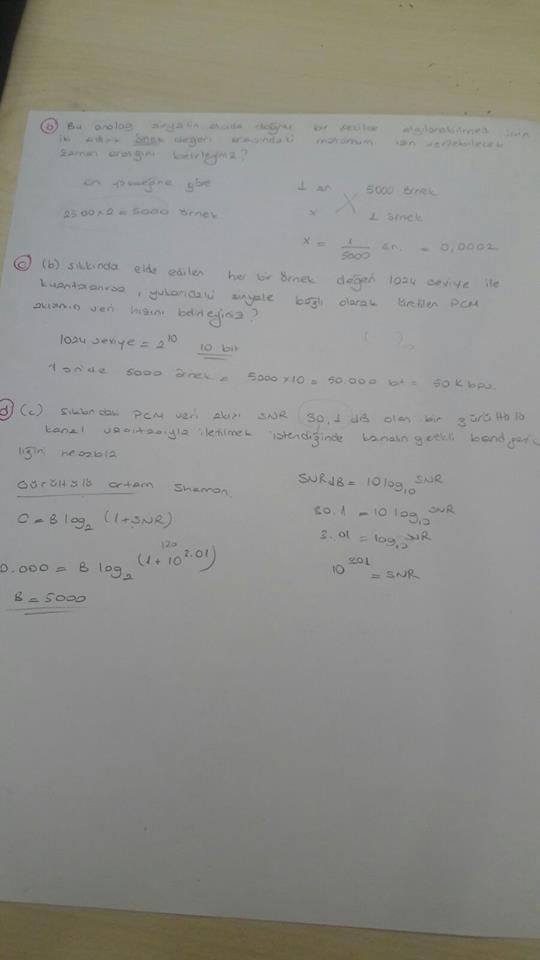 b) Bu analog sinyalin alıcıda doğru bir şekilde algılanabilmesi için
iki örnek değeri arasındaki maksimum izin verilebilecek
zaman aralığını belirleyiniz?
en yükseğine göre
2500x2 = 5000 örnek
1 sn 5000 örnek
x 1 örnek
x = 1/5000 sn. = 0,0002
c) (b) şıkkında elde edilen her bir örnek değeri 1024 seviye ile
kuantalanırsa, yukarıdaki sinyale bağlı olarak üretilen PCM
akısının veri hızını belirleyiniz?
1024 seviye = 2^10 10 bit
1 sn'de 5000 örnek = 5000x10 = 50.000 bit = 50 Kbps.
d) (c) şıkkındaki PCM veri akısı SNR 30,1 dB olan bir gürültülü
kanal vasıtasıyla iletilmek istendiğinde kanalın gerekli band
liğini
Gürültülü ortam Shannon
C = B log2 (1+SNR)
0.000 = B log2 (1+10^3.01)
B = 5000
SNR dB = 10 log10 SNR
30.1 = 10 log10 SNR
3.01 = log10 SNR
10^3.01 = SNR